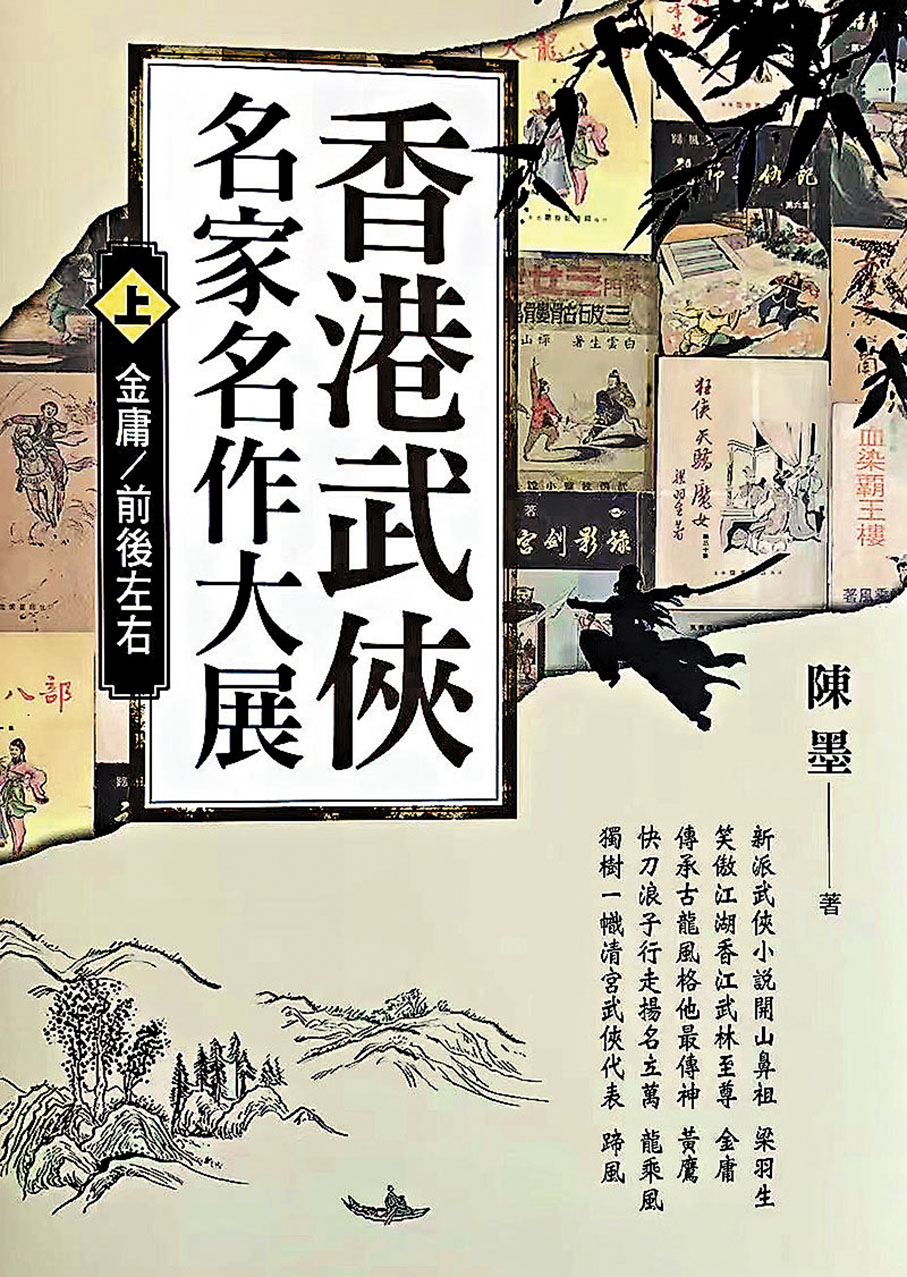 香港武俠
名家名作大展
上
金庸／前後左右
陳墨
著
新派武俠小說開山鼻祖 梁羽生
笑傲江湖香江武林至尊 金庸
傳承古龍風格他最傳神 黃鷹
快刀浪子行走揚名立萬 龍乘風
獨樹一幟清宮武俠代表 蹄風
天龍八部
三破骷髏
白雲生著
狂俠天驕魔女
梁羽生著
血染霸王樓
宮劍影錄
八部